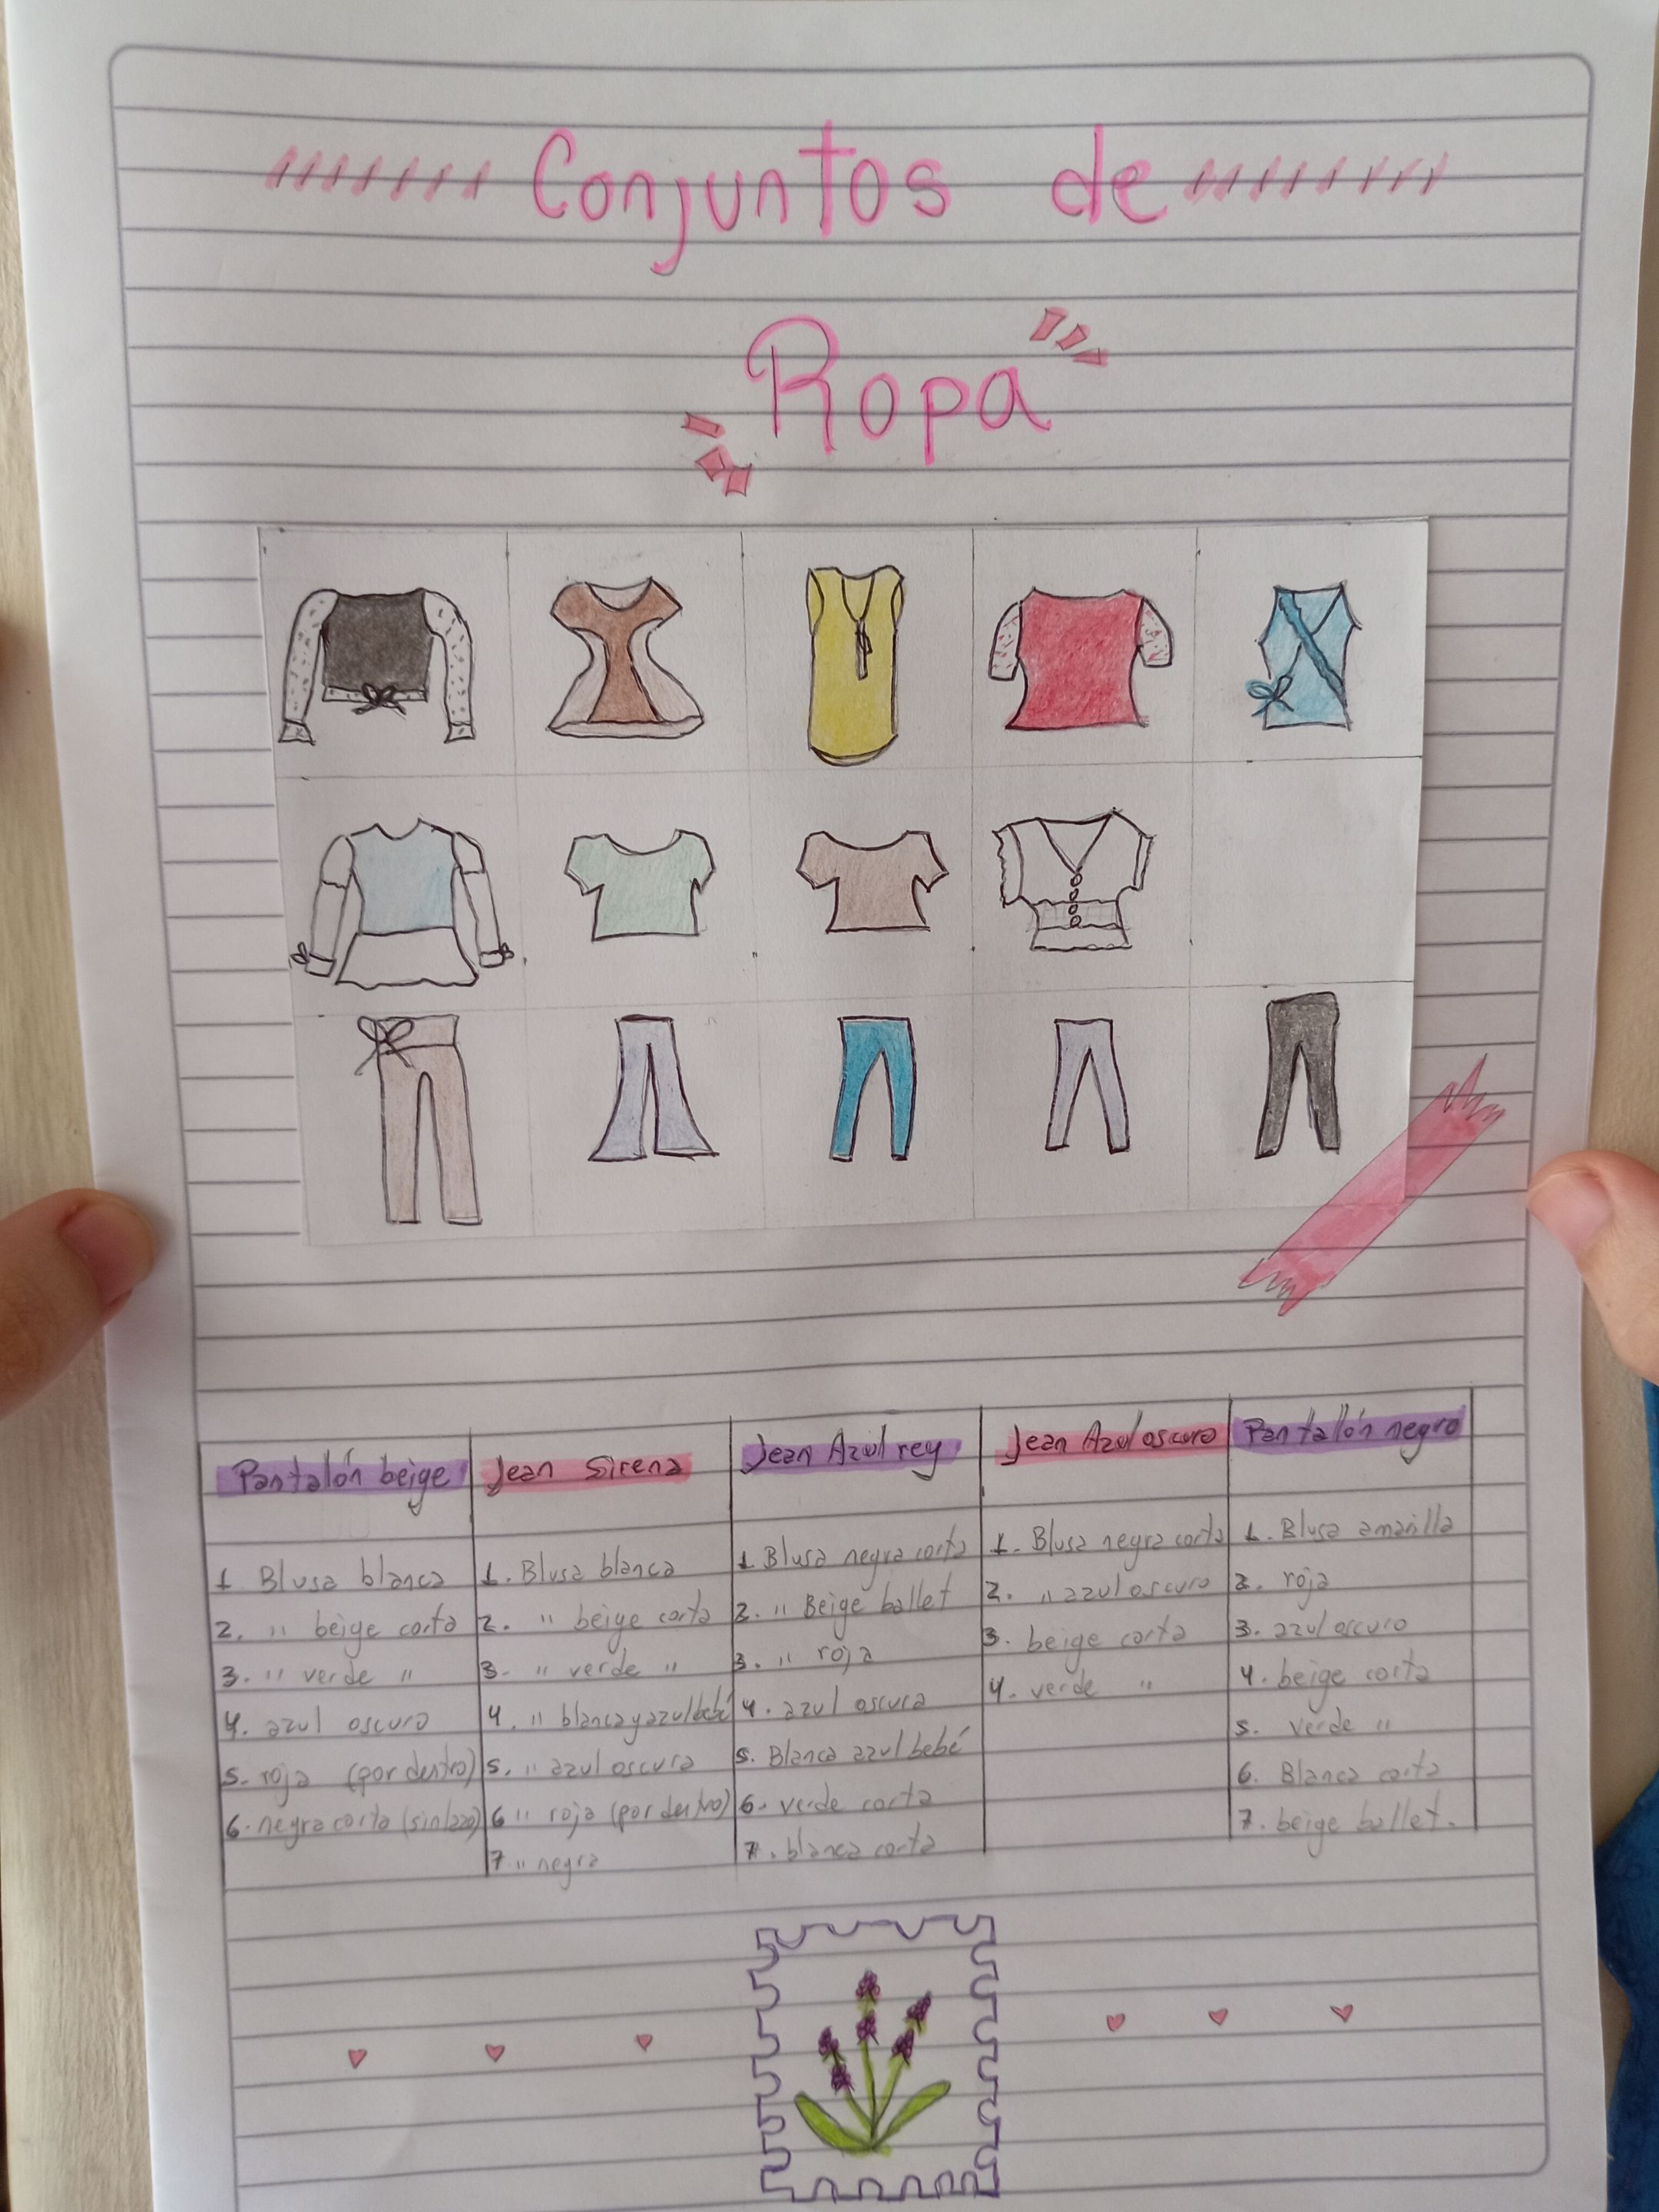 Conjuntos de
Ropa
Pantalón beige
1. Blusa blanca
2. " beige corta
3. " verde "
4. azul oscuro
5. roja (por dentro)
6. negra corta (sin lazo)
Jean Sirena
1. Blusa blanca
2. " beige corta
3. " verde "
4. " blanca y azul bebé
5. " azul oscura
6 " roja (por dentro)
7 " negra
Jean Azul rey
1. Blusa negra corta
2. " Beige ballet
3. " roja
4. azul oscura
5. Blanca azul bebé
6. verde corta
7. blanca corta
Jean Azul oscuro
1. Blusa negra corta
2. " azul oscuro
3. beige corta
4. verde "
Pantallón negro
1. Blusa amarilla
2. roja
3. azul oscuro
4. beige corta
5. verde "
6. Blanca corta
7. beige ballet.